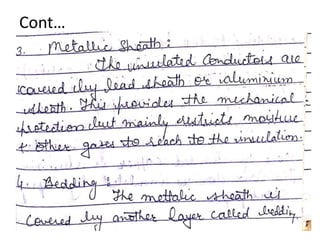 Cont...
3. Metallic Sheath:
The insulated Conductors are
covered by lead sheath or aluminium
sheath. This provides the mechanical
protection but mainly restricts moisture
& other gases to reach to the insulation.
4. Bedding:
The mettalic sheath is
covered by another layer called bedding